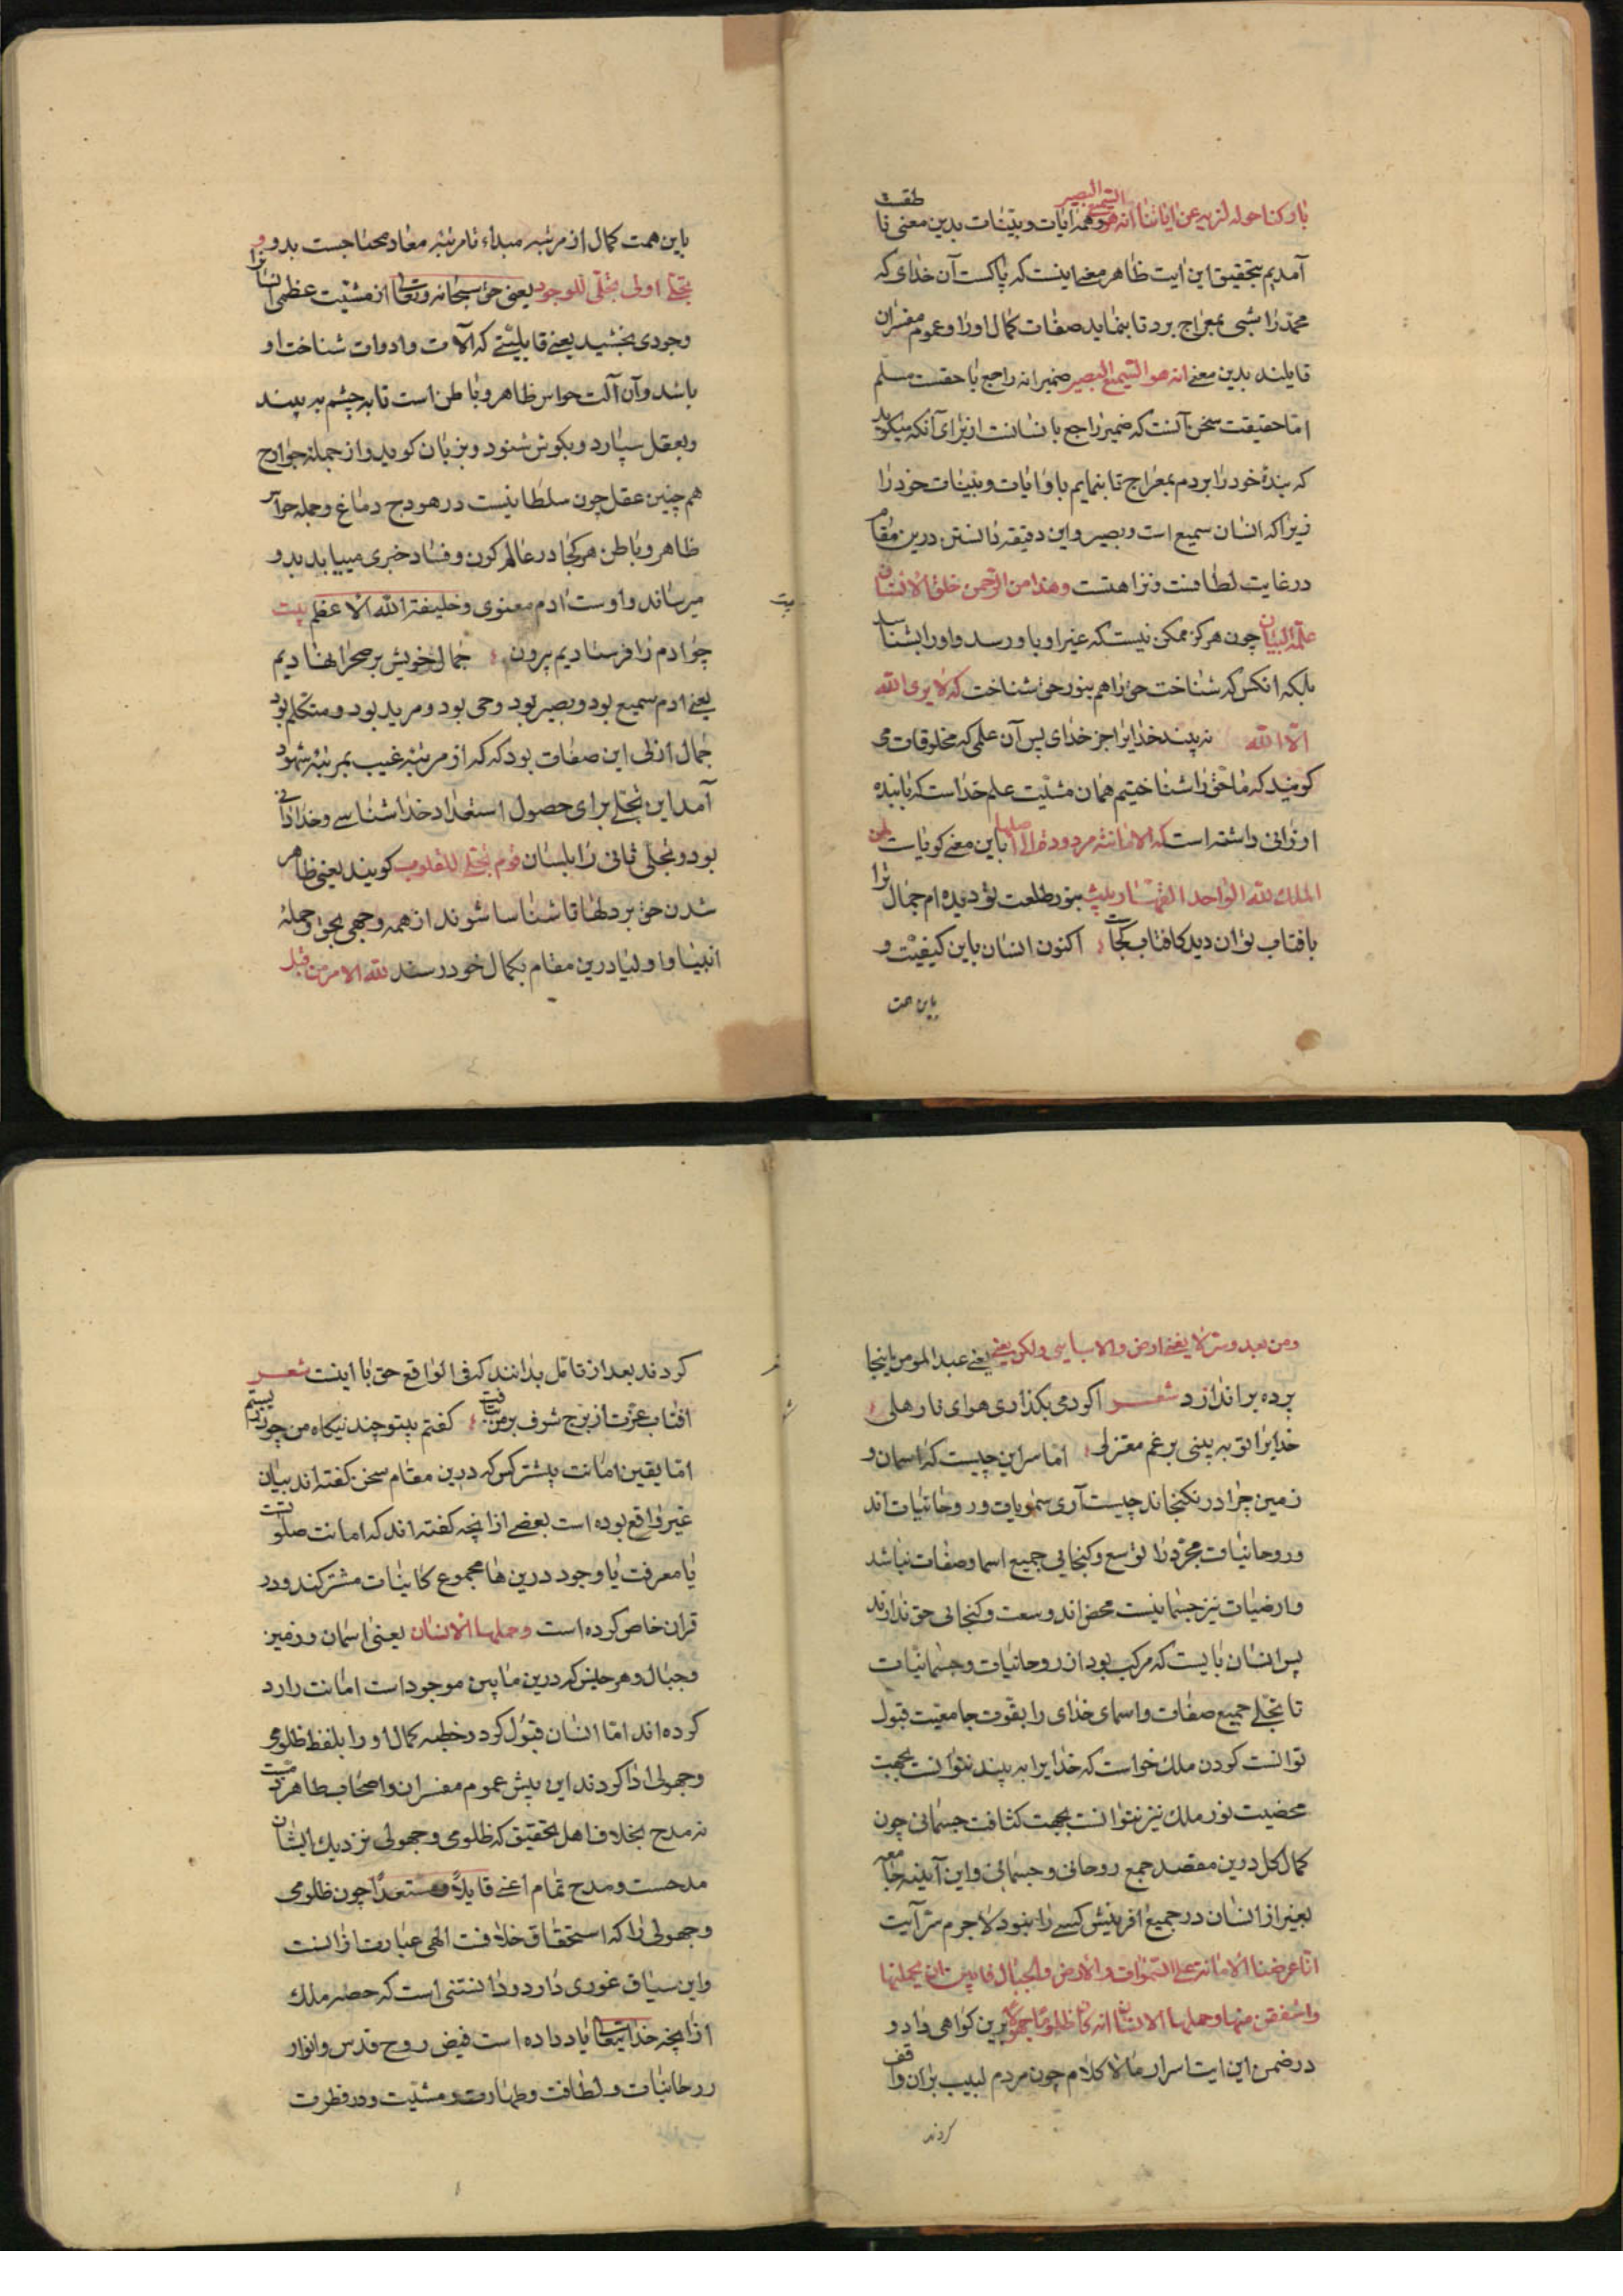 بارکنا حوله لنریه من ایاتنا انه هو السمیع البصیر و همه ایات و بینات بدین معنی نا طقست
آمدیم بتحقیق این ایت ظاهر معنی اینست که پاکست آن خدای که
محمد را شبی بمعراج برد تا بنماید صفات کمال او را و عموم مفسران
قایلند بدین معنی انه هو السمیع البصیر ضمیر انه راجع با حقست مسلم
اما حقیقت سخن آنست که ضمیر راجع با نسانست از برای آنکه میکوید
که بندهٔ خود را بردم بمعراج تا بنمایم باو ایات و بینات خود را
زیرا که انسان سمیع است و بصیر و این دقیقه دانستن درین مقام
در غایت لطافت و نزاهتست وهذا من الرحمن خلق الانسان
علمه البیان چون هرکز ممکن نیست که غیر او باو رسد و او را بشناسد
بلکه انکس که شناخت حق را هم بنور حق شناخت که لا یری الله
الا الله نه بیند خدایرا جز خدای پس آن علمی که مخلوقات می
کویند که ما حق را شناختیم همان مشیّت علم خداست که با بنده
ارزانی داشته است که الامانة مردودة الی اهلها باین معنی کویاست لمن
الملک لله الواحد القهار بیت بنور طلعت تو دیده ام جمال ترا
بافتاب توان دید کافتاب کجاست اکنون انسان باین کیفیت و
باین همت
باین همت کمال از مرتبه مبداء تا مرتبه معاد محتاجست بدو و
تجلی اولی تجلی للوجود یعنی حق سبحانه وتعالی از مشیّت عظمی انسانرا
وجودی بخشید یعنی قابلیتی که آلات و ادوات شناخت او
باشد و آن آلت حواس ظاهر و باطن است تا به چشم به بیند
و بعقل سپارد و بکوش شنود و بزبان کوید و از جمله جوارح
هم چنین عقل چون سلطانیست در هودج دماغ و جمله حواس
ظاهر و باطن هر کجا در عالم کون و فساد خبری مییابد بدو
میرساند و اوست ادم معنوی و خلیفة الله الاعظم بیت
چو ادم را فرستادیم بیرون جمال خویش بر صحرا نهادیم
یعنی ادم سمیع بود و بصیر بود و حی بود و مرید بود و متکلم بود
جمال ازلی این صفات بود که که از مرتبه غیب بمرتبهٔ شهود
آمد این تجلی برای حصول استعداد خدا شناسی و خدا دانی
بود و تجلی ثانی را بلسان قوم تجلی للقلوب کویند یعنی ظاهر
شدن حق بر دلها تا شناسا شوند از همه وجهی بحق و جملهٔ
انبیا و اولیا درین مقام بکمال خود رسند لله الامر من قبل
ومن بعد و سر لا یسعنی ارضی ولا سمایی ولکن یسعنی یعنی عبد المومن اینجا
پرده بر اندازد شعر اکر دمی بکذاری هوای نا رهلی
خدایرا تو به بینی برغم معتزلی اما سر این چیست که اسمان و
زمین چرا در نکنجاند چیست آری سمویات و روحانیات اند
و روحانیات مجرد را توسع و کنجایی جمیع اسما و صفات نباشد
و ارضیات نیز جسمانیت محض اند و سعت و کنجانی حق ندارند
پس انسان بایست که مرکب بود از روحانیات و جسمانیات
تا تجلی جمیع صفات و اسمای خدای را بقوت جامعیت قبول
توانست کردن ملک خواست که خدایرا به بیند نتوانست بجهت
محضیت نور ملک نیز نتوانست بجهت کثافت جسمانی چون
کمال کل درین مقصد جمع روحانی و جسمانی و این آینه جامعه
بغیر از انسان در جمیع افرینش کسی را نبود لاجرم سر آیت
انا عرضنا الامانة علی السموات والارض والجبال فابین ان یحملنها
واشفقن منها وحملها الانسان انه کان ظلوما جهولا برین کواهی داد و
در ضمن این ایت اسرار مالا کلام چون مردم لبیب بران واقف
کردند
کردند بعد از تامل بدانند که فی الواقع حق با اینست شعر
افتاب عزت از برج شرف بر من بتافت کفتم بیتو چند نیکاه من چون زیستم
اما یقین امانت بیشتر کس که درین مقام سخن کفته اند بیان
غیر واقع بوده است بعضی از انچه کفته اند که امانت صلوتست
یا معرفت یا وجود درین ها مجموع کاینات مشترکند و در
قران خاص کرده است وحملها الانسان یعنی اسمان و زمین
و جبال و هر جنس که درین مابین موجود است امانت را رد
کرده اند اما انسان قبول کرد در خطبه کمال او را بلفظ ظلومی
و جهولی ادا کردند این پیش عموم مفسران و اصحاب ظاهر ذمست
نه مدح بخلاف اهل تحقیق که ظلومی و جهولی نزدیک ایشان
مدحست و مدح تمام اعنی قابلا مستعدا چون ظلومی
و جهولی را که استحقاق خلافت الهی عبارت ازانست
و این سیاق غوری دارد و دانستنی است که حصهٔ ملک
از انچه خدایتعالی یاد داده است فیض روح قدس و انوار
روحانیات و لطافت و طهارت و مشیت و در فطرت